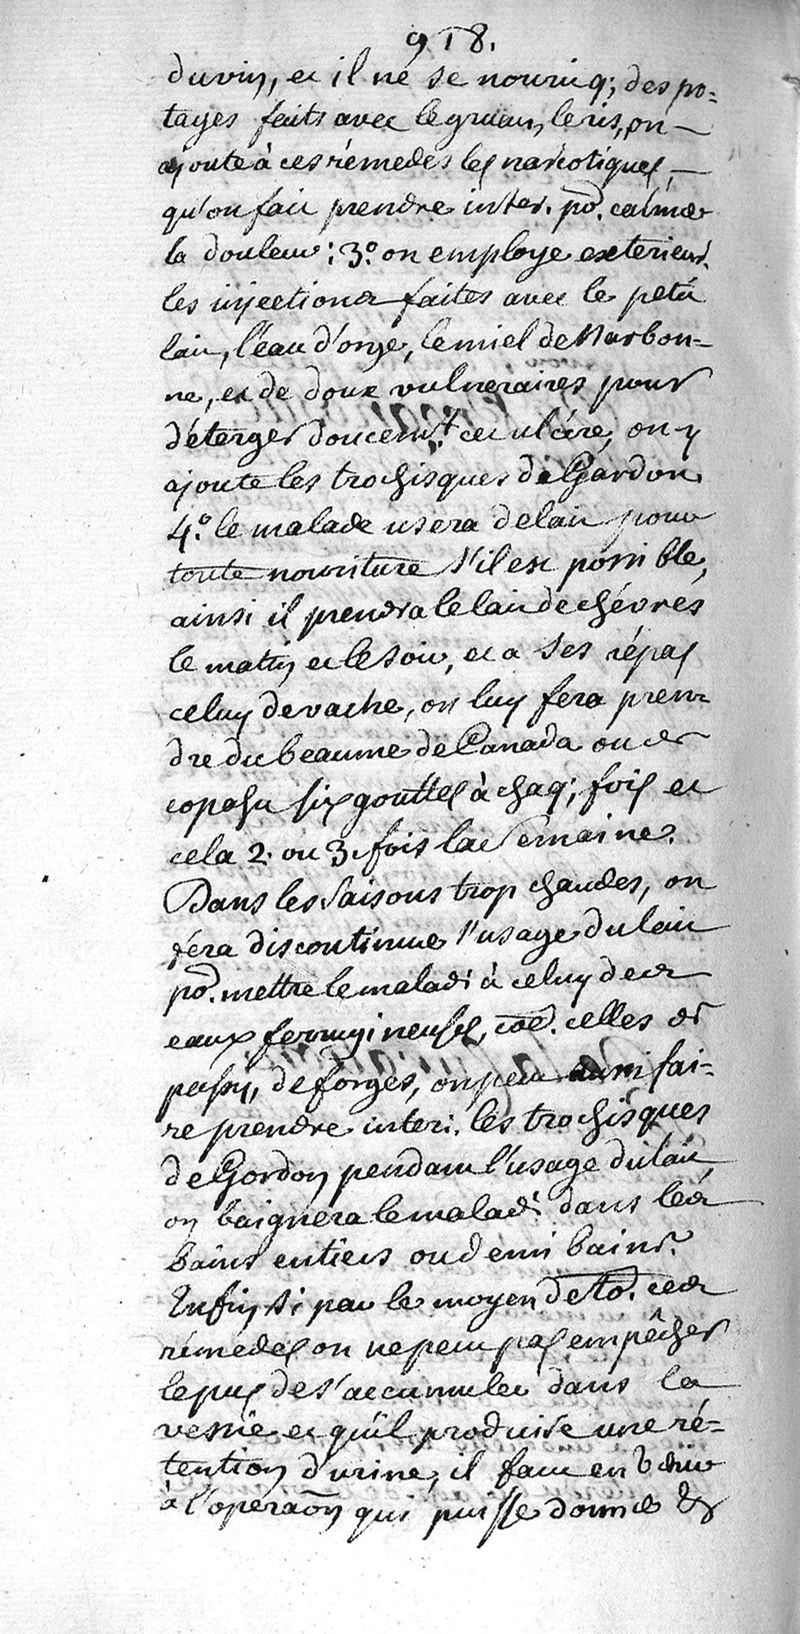 918.
du vin, et il ne se nourriq; des po=
tages faits avec le gruau, le ris, on
ajoute à ces rémedes les narcotiques
qu'on fait prendre inter. po. calmer
la douleur: 3.o on employe exterieur.
les injections faites avec le petit
lait, l'eau d'orge, le miel de Narbon-
ne, et de doux vulneraires pour
déterger doucem.t cet ulcére, on y
ajoute les trochisques de Gordon.
4.o le malade usera de lait pour
toute nourriture s'il est possible,
ainsi il prendra le lait de chévres
le matin et le soir, et a ses répas
celuy de vache, on luy fera pren-
dre du beaume de Canada ou de
copahu six gouttes à chaq; fois et
cela 2. ou 3. fois la semaine.
Dans les saisons trop chaudes, on
fera discontinuer l'usage du lait
po. mettre le malad: à celuy des
eaux ferrugineuses, coe. celles de
passy, de forges, on peut aussi fai-
re prendre interi. les trochisques
de Gordon pendant l'usage du lait,
on baignera le malad: dans les
bains entiers ou demi bains.
Enfin si par le moyen de to. ces
rémedes on ne peut pas empêcher
le pus de s'accumuler dans la
vessie et qu'il produise une ré-
tention d'urine, il faut en venir
à l'operaõn qui puisse donner &